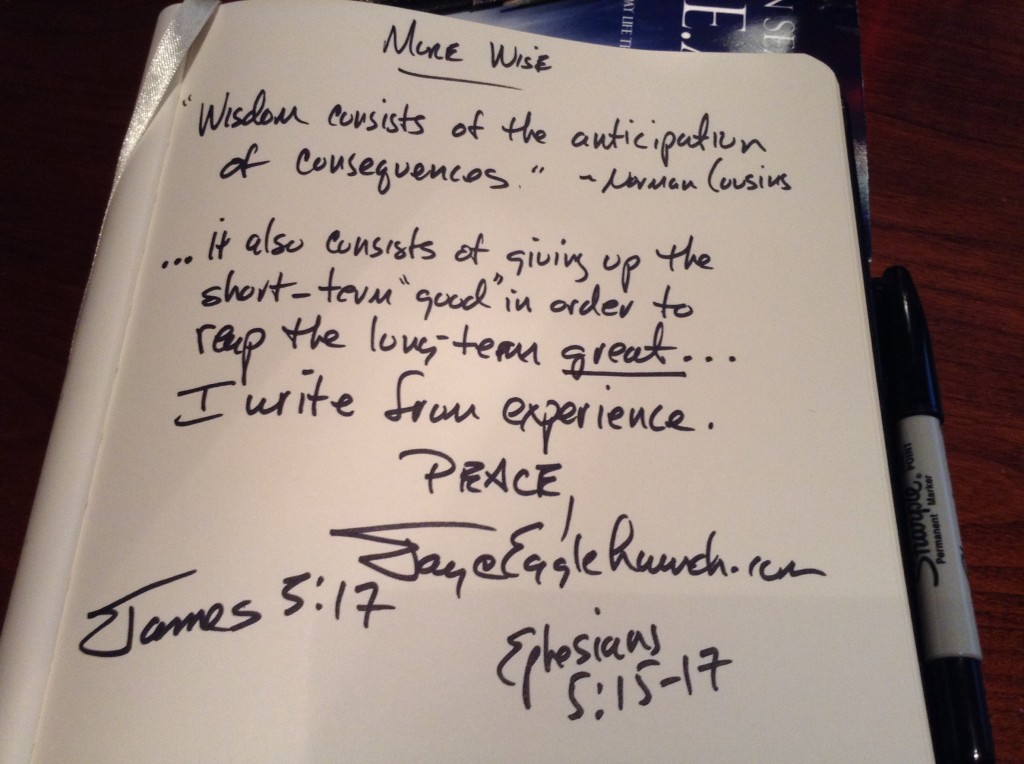 More Wise
"Wisdom consists of the anticipation
of consequences." ~ Norman Cousins
... it also consists of giving up the
short-term "good" in order to
reap the long-term great...
I write from experience.
PEACE,
Jay@EagleChurch.com
James 5:17
Ephesians
5:15-17
Sharpie.
POINT
Permanent Marker
N SE
E.
AY LIFE T